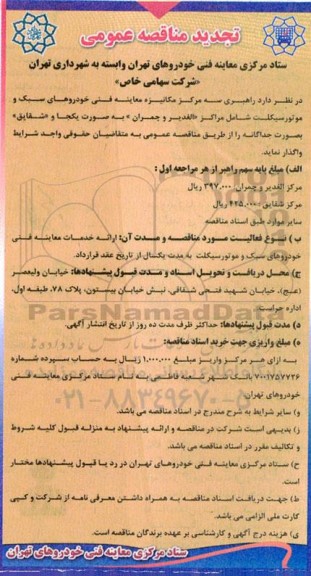 تجدید مناقصه عمومی
ستاد مرکزی معاینه فنی خودروهای تهران وابسته به شهرداری تهران
«شرکت سهامی خاص»
در نظر دارد راهبری سه مرکز مکانیزه معاینه فنی خودروهای سبک و
موتورسیکلت شامل مراکز «الغدیر و چمران» به صورت یکجا و «شقایق»
بصورت جداگانه را از طریق مناقصه عمومی به متقاضیان حقوقی واجد شرایط
واگذار نماید.
الف) مبلغ پایه سهم راهبر از هر مراجعه اول :
مرکز الغدیر و چمران: ۳۹۷.۰۰۰ ریال
مرکز شقایق: ۴۲۵.۰۰۰ ریال
سایر موارد طبق اسناد مناقصه
ب) نوع فعالیت مورد مناقصه و مدت آن: ارائه خدمات معاینه فنی
خودروهای سبک و موتورسیکلت به مدت یکسال از تاریخ عقد قرارداد.
ج) محل دریافت و تحویل اسناد و مدت قبول پیشنهادها: خیابان ولیعصر
(عج)، خیابان شهید فتحی شقاقی، نبش خیابان بیستون، پلاک ۷۸، طبقه اول،
اداره حراست
د) مدت قبول پیشنهادها: حداکثر ظرف مدت ده روز از تاریخ انتشار آگهی.
ه) مبلغ واریزی جهت خرید اسناد مناقصه:
به ازای هر مرکز واریز مبلغ ۱.۰۰۰.۰۰۰ ریال به حساب سپرده شماره
۷۰۰۲۷۵۷۷۲۶ بانک شهر شعبه فاطمی بنام ستاد مرکزی معاینه فنی
خودروهای تهران
و) سایر شرایط به شرح مندرج در اسناد مناقصه می باشد.
ز) بدیهی است شرکت در مناقصه و ارائه پیشنهاد به منزله قبول کلیه شروط
و تکالیف مقرر در اسناد مناقصه می باشد.
ح) ستاد مرکزی معاینه فنی خودروهای تهران در رد یا قبول پیشنهادها مختار
است.
ط) جهت دریافت اسناد مناقصه به همراه داشتن معرفی نامه از شرکت و کپی
کارت ملی الزامی می باشد.
ی) هزینه درج آگهی و کارشناسی بر عهده برندگان مناقصه است.
ستاد مرکزی معاینه فنی خودروهای تهران
ParsNamadData
۰۲۱-۸۸۳۴۹۶۷۰-۵